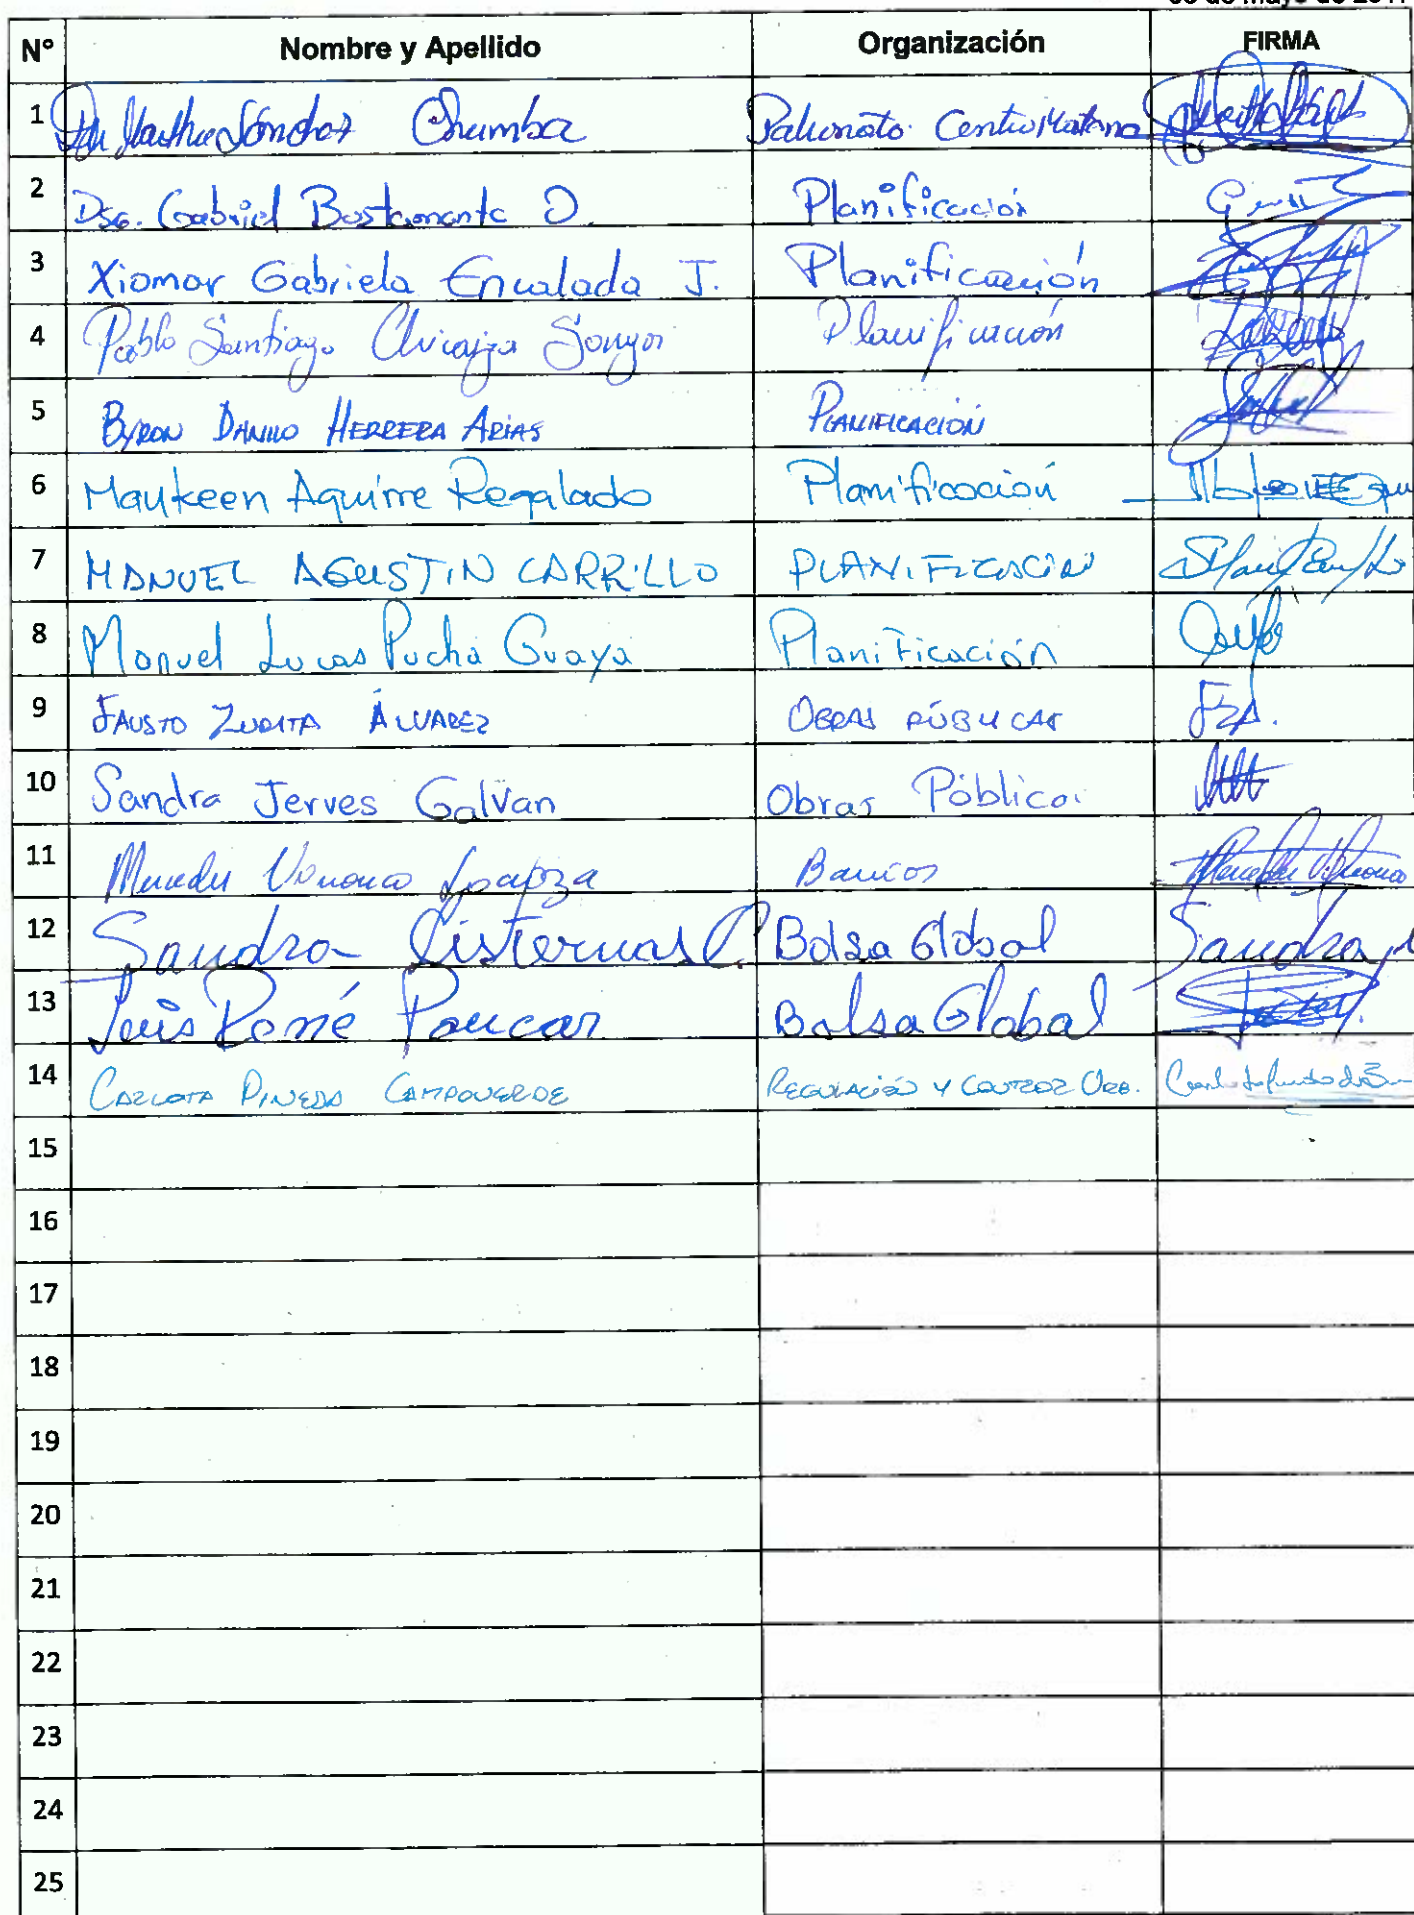 de Mayo de 2017
N° Nombre y Apellido Organización FIRMA
1 Martha Sánchez Chumba Patronato Centro Materno
2 Dso. Gabriel Bustamante O. Planificación
3 Xiomar Gabriela Encalada J. Planificación
4 Pablo Santiago Planificación
5 BYRON DANILO HERRERA ARIAS PLANIFICACIÓN
6 Maykeen Aguirre Regalado Planificación
7 MANUEL AGUSTIN CARRILLO PLANIFICACIÓN
8 Manuel Lucas Pucha Guaya Planificación
9 FAUSTO ZURITA ÁLVAREZ OBRAS PÚBLICAS FZA.
10 Sandra Jerves Galvan Obras Públicas
11 Barrios
12 Sandra Cisternas C. Bolsa Global Sandra
13 Luis René Paucar Bolsa Global
14 CARLOTA PINEDA CAMPOVERDE REGULACIÓN Y CONTROL URB.
15
16
17
18
19
20
21
22
23
24
25